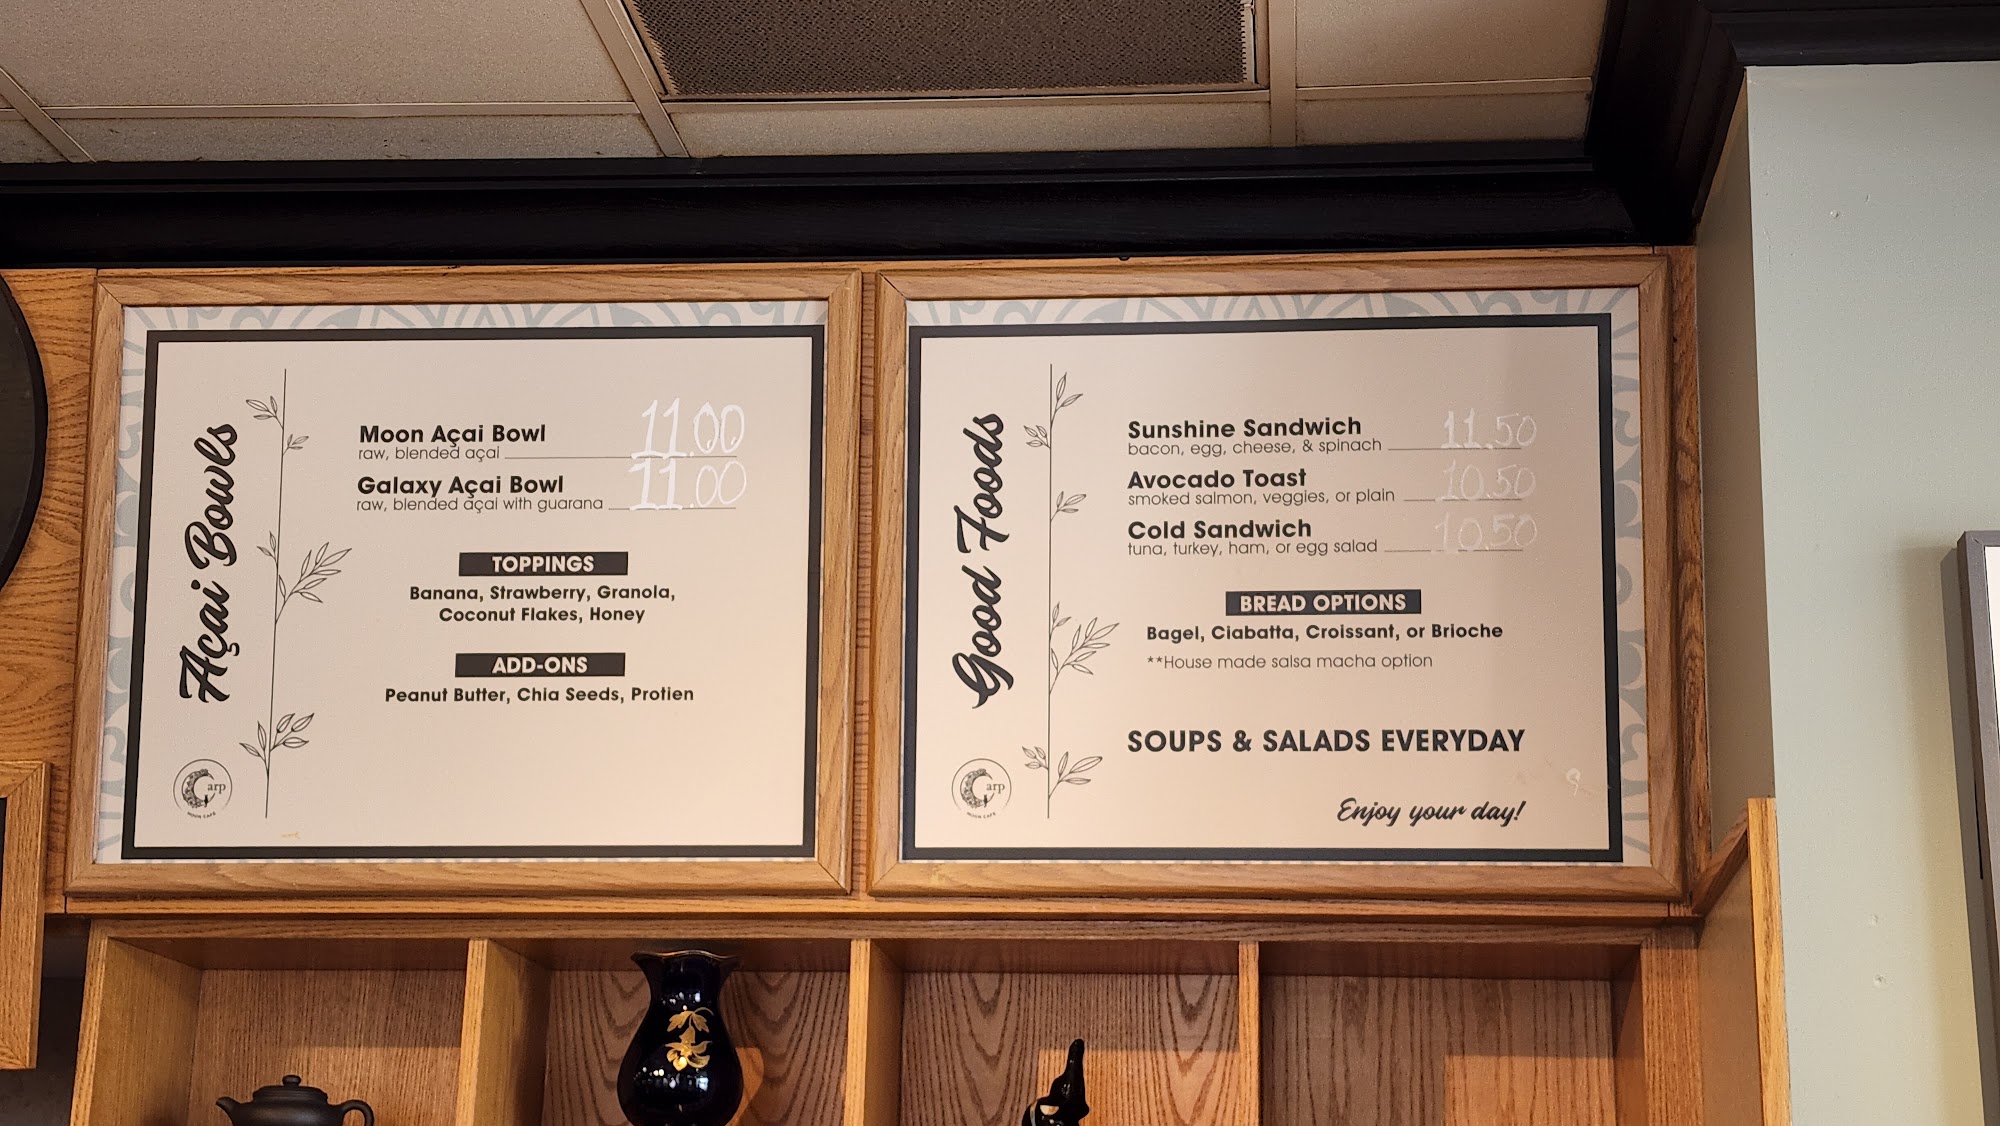 Açai Bowls
Moon Açai Bowl 11.00
raw, blended açai
Galaxy Açai Bowl 11.00
raw, blended açai with guarana
TOPPINGS
Banana, Strawberry, Granola,
Coconut Flakes, Honey
ADD-ONS
Peanut Butter, Chia Seeds, Protien
arp
MOON CAFE
Good Foods
Sunshine Sandwich 11.50
bacon, egg, cheese, & spinach
Avocado Toast 10.50
smoked salmon, veggies, or plain
Cold Sandwich 10.50
tuna, turkey, ham, or egg salad
BREAD OPTIONS
Bagel, Ciabatta, Croissant, or Brioche
**House made salsa macha option
SOUPS & SALADS EVERYDAY
Enjoy your day!
arp
MOON CAFE